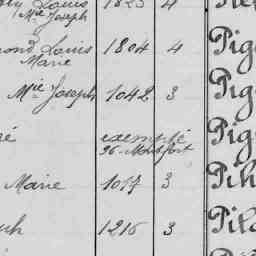 Louis 1823 4
Mie Joseph
Louis 1804 4 Pig
Marie
Mie Joseph 1042 3 Pig
exempté Pig
96 - Montfort
Marie 1017 3 Pih
1216 3 Pila